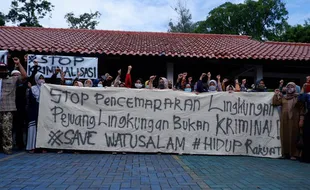 #STOP
KRIMINALISASI
STOP PENCEMARAN LINGKUNGAN
PEJUANG LINGKUNGAN BUKAN KRIMINAL!
#SAVE WATUSALAM #HIDUP RAKYAT